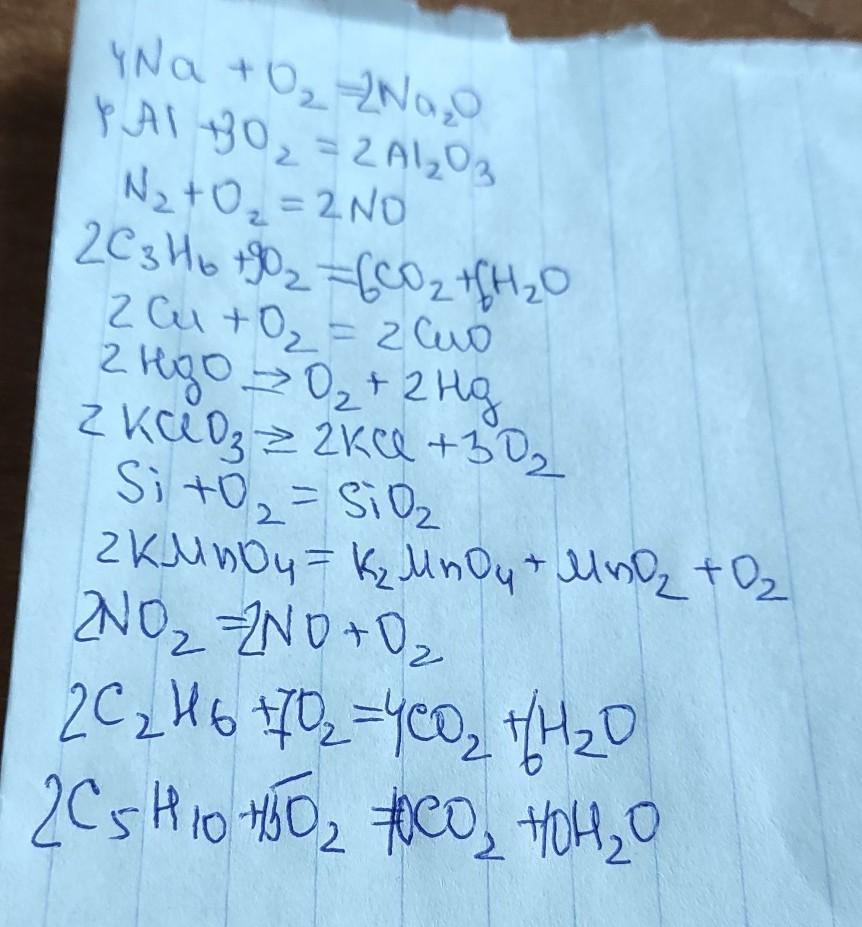 4Na + O₂ = 2Na₂O
4Al + 3O₂ = 2Al₂O₃
N₂ + O₂ = 2NO
2C₃H₆ + 9O₂ = 6CO₂ + 6H₂O
2Cu + O₂ = 2CuO
2HgO ⇒ O₂ + 2Hg
2KClO₃ ⇒ 2KCl + 3O₂
Si + O₂ = SiO₂
2KMnO₄ = K₂MnO₄ + MnO₂ + O₂
2NO₂ = 2NO + O₂
2C₂H₆ + 7O₂ = 4CO₂ + 6H₂O
2C₅H₁₀ + 15O₂ = 10CO₂ + 10H₂O